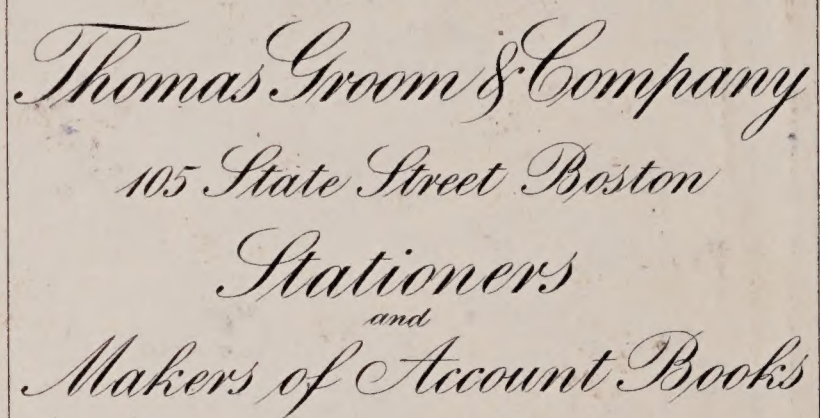 Thomas Groom & Company
105 State Street Boston
Stationers
and
Makers of Account Books